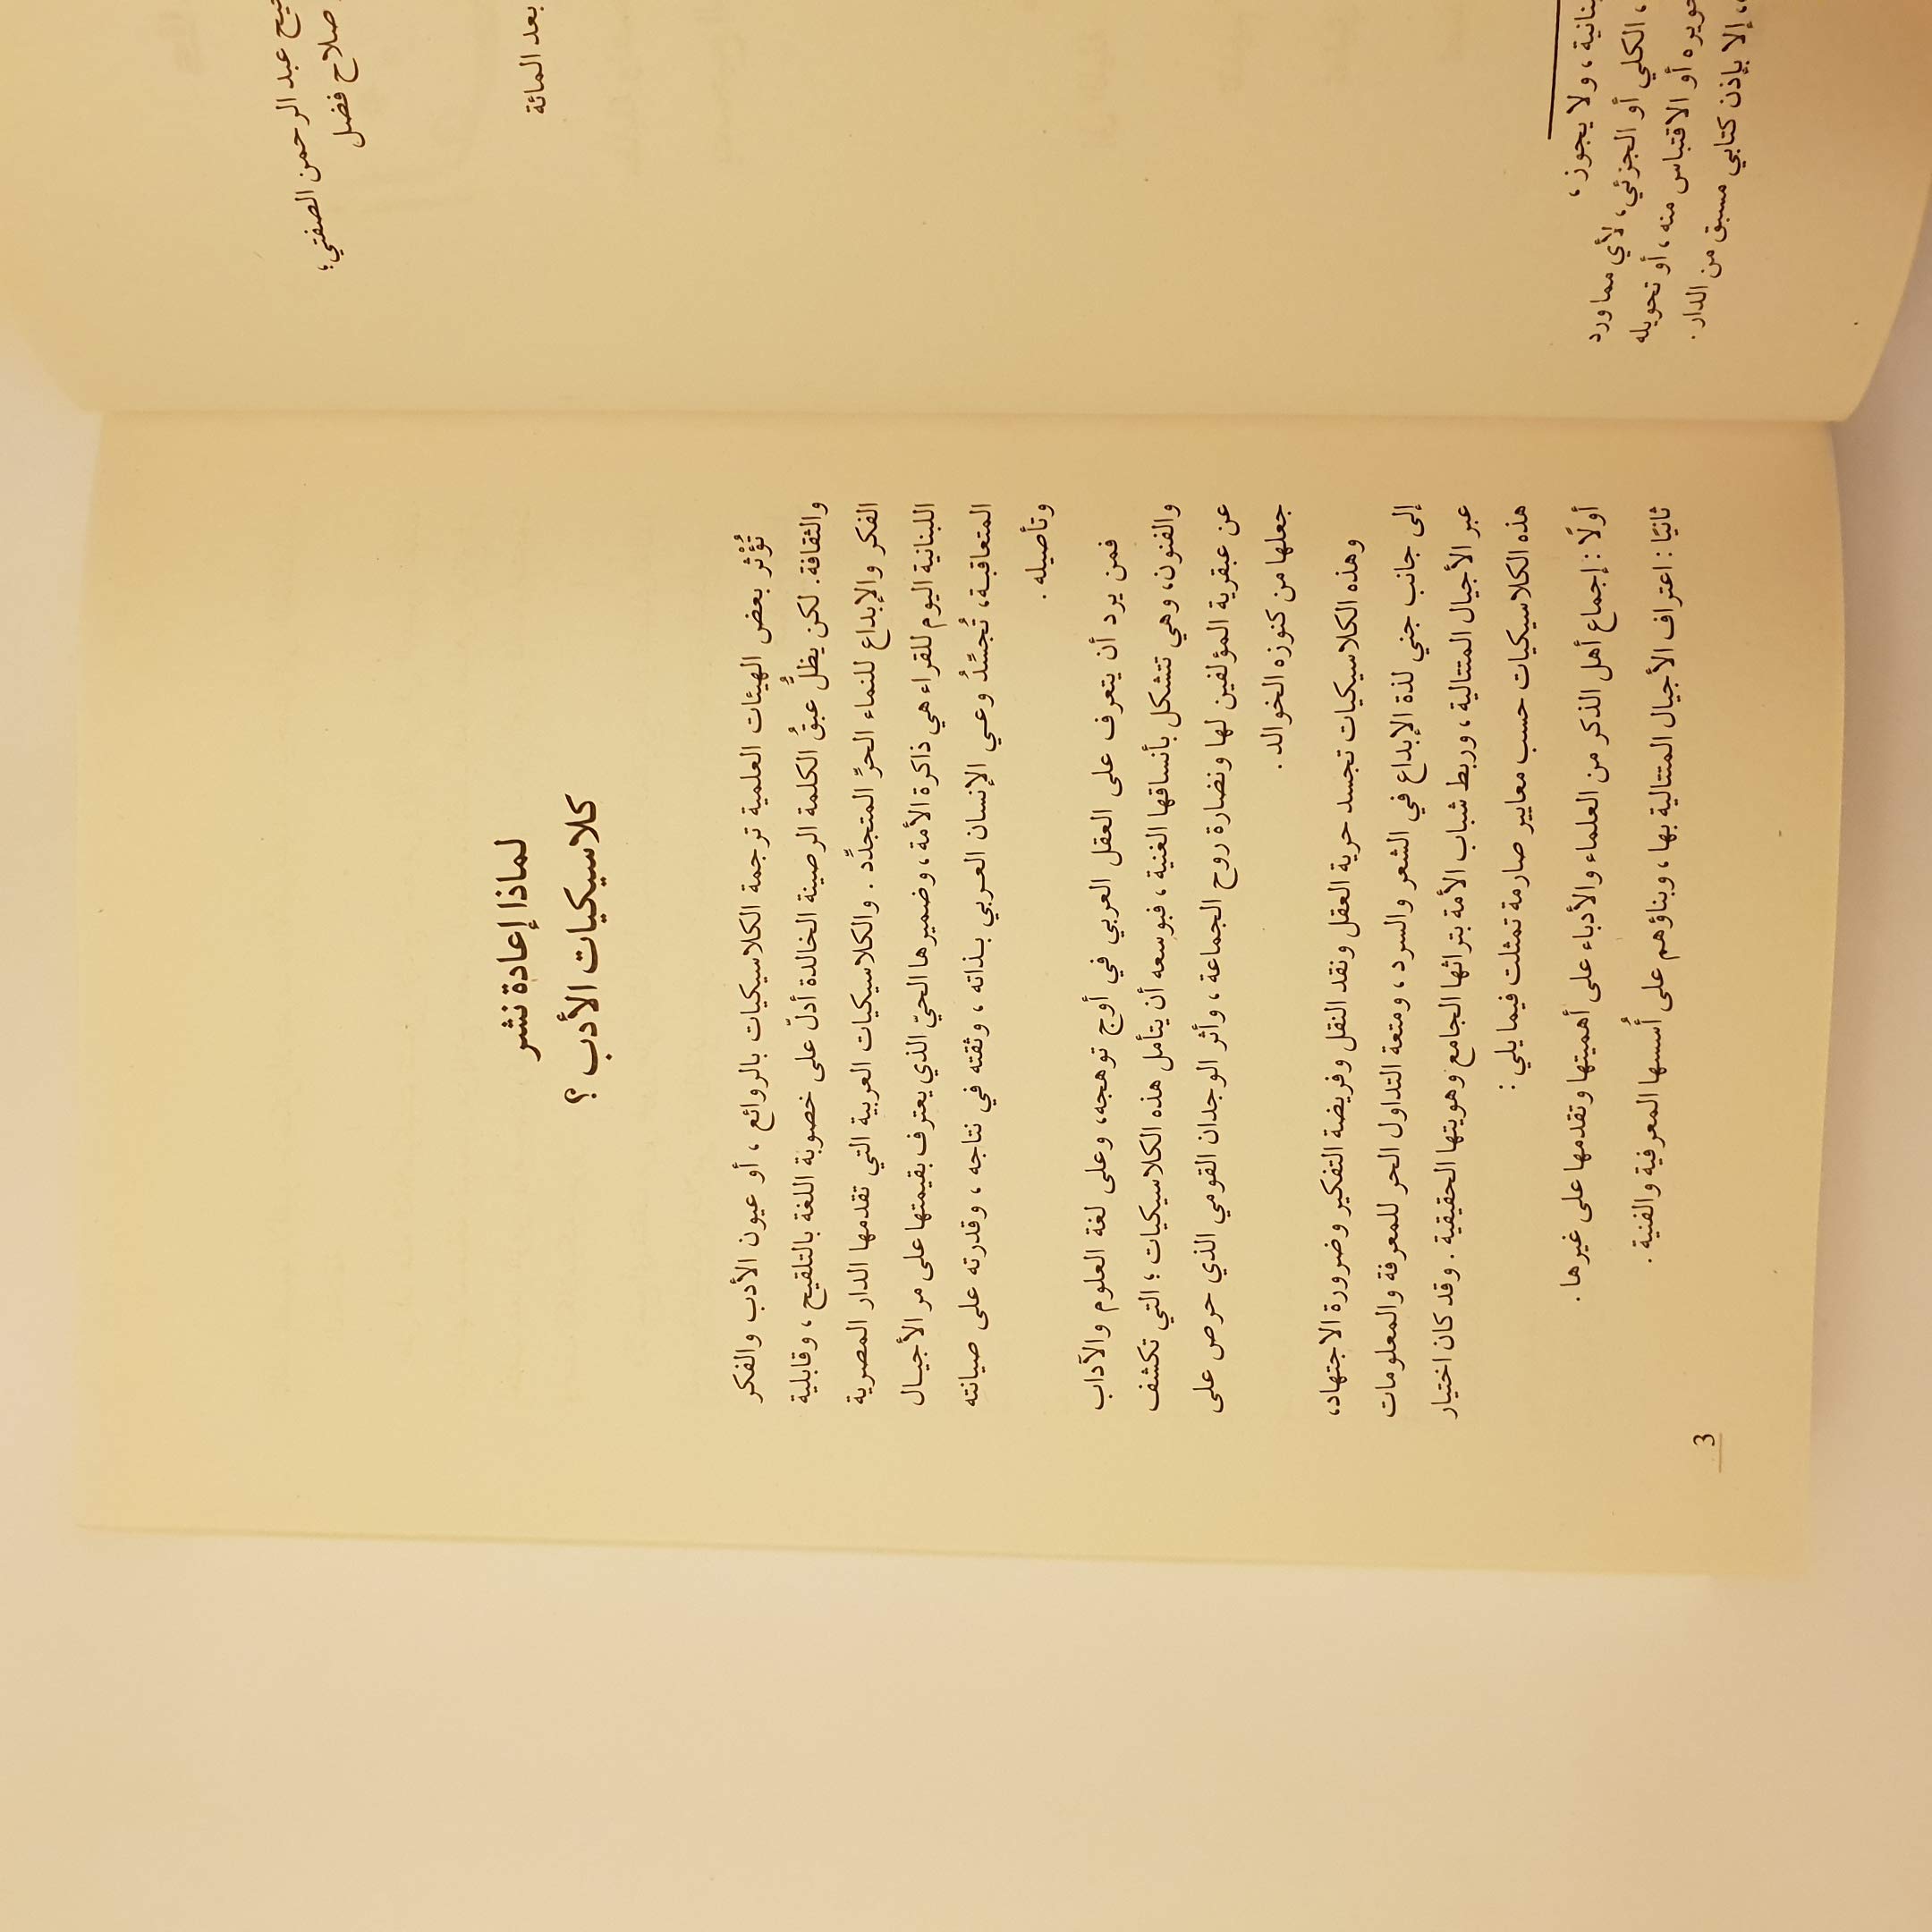 عبد الرحمن الصفتي؛
صلاح فضل
بعد المائة
، ولا يجوز،
، الكلي أو الجزئي، لأي مما ورد
أو الاقتباس منه، أو تحويله
، إلا بإذن كتابي مسبق من الدار.
لماذا إعادة نشر
كلاسيكيات الأدب ؟
تُؤْثر بعض الهيئات العلمية ترجمة الكلاسيكيات بالروائع ، أو عيون الأدب والفكر
والثقافة. لكن يظلُّ عبقُ الكلمة الرصينة الخالدة أدلّ على خصوبة اللغة بالتلقيح ، وقابلية
الفكر والإبداع للنماء الحرِّ المتجدِّد . والكلاسيكيات العربية التي تقدمها الدار المصرية
اللبنانية اليوم للقراء هي ذاكرة الأمة ، وضميرها الحيّ الذي يعترف بقيمتها على مر الأجيال
المتعاقبة، تُجسِّدُ وعي الإنسان العربي بذاته ، وثقته في نتاجه ، وقدرته على صيانته
وتأصيله .
فمن يرد أن يتعرف على العقل العربي في أوج توهجه، وعلى لغة العلوم والآداب
والفنون، وهي تتشكل بأنساقها الغنية ، فبوسعه أن يتأمل هذه الكلاسيكيات ؛ التي تكشف
عن عبقرية المؤلفين لها ونضارة روح الجماعة ، وأثر الوجدان القومي الذي حرص على
جعلها من كنوزه الخوالد .
وهذه الكلاسيكيات تجسد حرية العقل ونقد النقل وفريضة التفكير وضرورة الاجتهاد،
إلى جانب جني لذة الإبداع في الشعر والسرد ، ومتعة التداول الحر للمعرفة والمعلومات
عبر الأجيال المتتالية ، وربط شباب الأمة بتراثها الجامع وهويتها الحقيقية . وقد كان اختيار
هذه الكلاسيكيات حسب معايير صارمة تمثلت فيما يلي :
أولًا : إجماع أهل الذكر من العلماء والأدباء على أهميتها وتقدمها على غيرها .
ثانيًا : اعتراف الأجيال المتتالية بها ، وبناؤهم على أُسسها المعرفية والفنية .
3